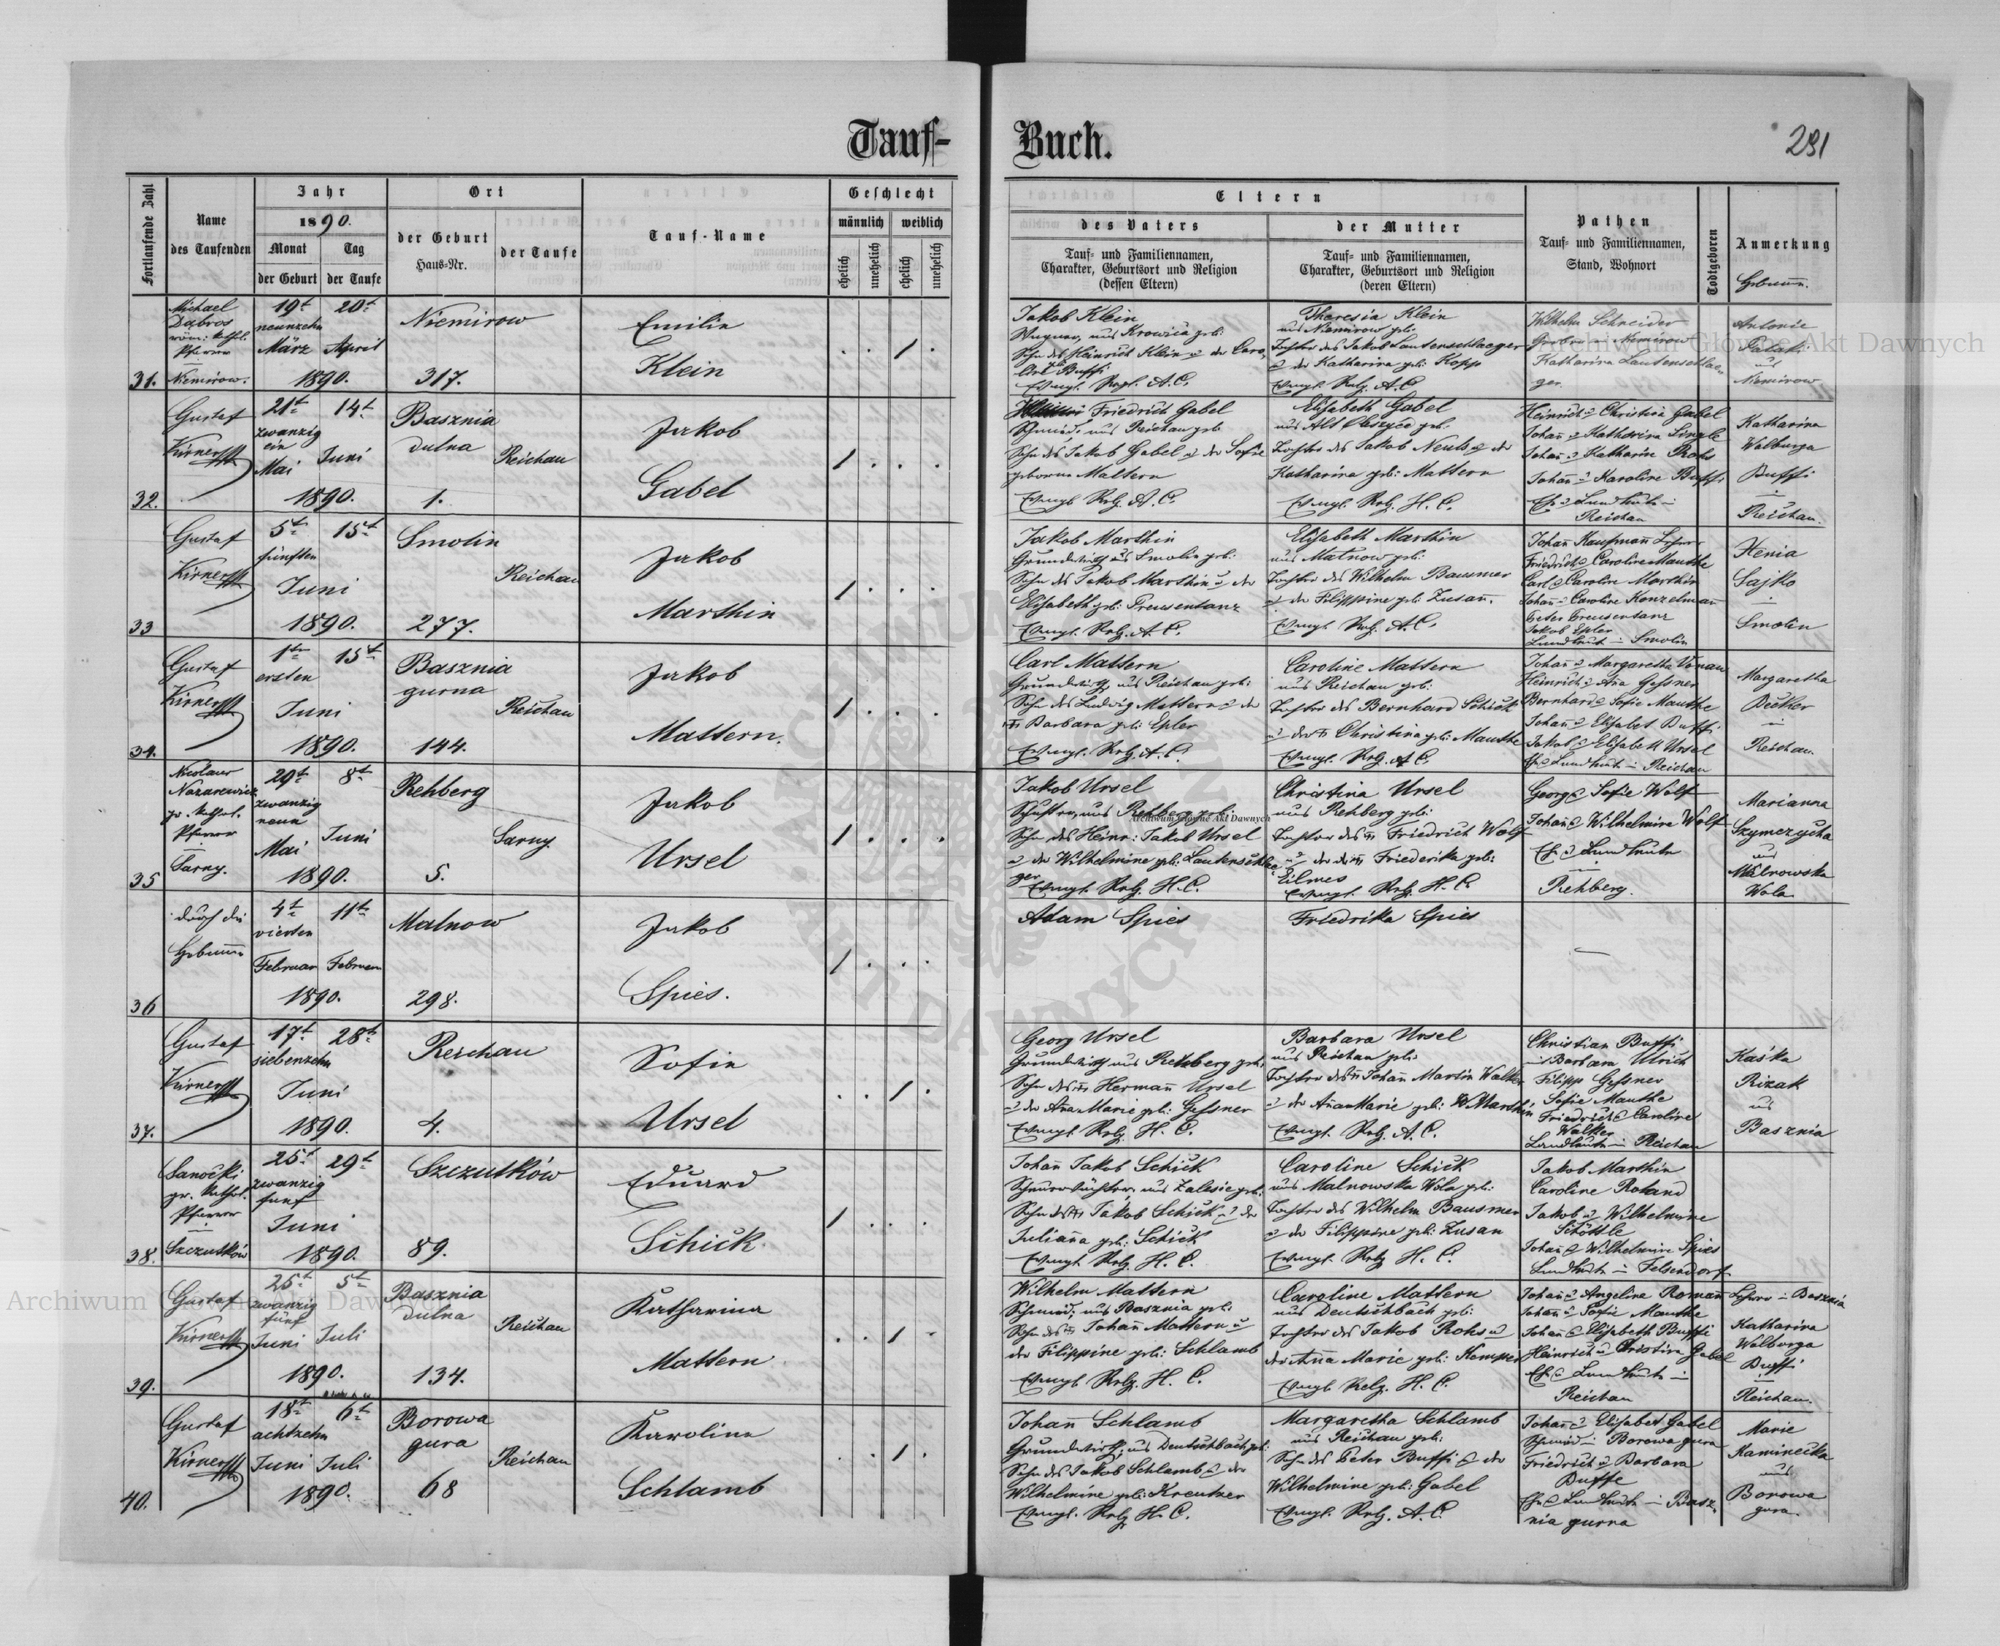 Tauf-
Buch.
291
Fortlaufende Zahl
Name
des Taufenden
Jahr
1890.
Monat Tag
der Geburt der Taufe
Ort
der Geburt
Haus-Nr.
der Taufe
Tauf-Name
Geschlecht
männlich weiblich
ehelich
unehelich
ehelich
unehelich
Eltern
des Vaters
Tauf- und Familiennamen,
Charakter, Geburtsort und Religion
(dessen Eltern)
der Mutter
Tauf- und Familiennamen,
Charakter, Geburtsort und Religion
(deren Eltern)
Pathen
Tauf- und Familiennamen,
Stand, Wohnort
Todtgeboren
Anmerkung
31.
Michael
Dabros
Pfarrer
Niemirow.
19t 20t
neunzehn
März April
1890.
Niemirow
317.
Emilie
Klein
Jakob Klein
Wagner, aus Krowica geb.
Sohn des Heinrich Klein u. der Caro-
Buffi
Evngl. Relg. A. C.
Theresia Klein
aus Niemirow geb.
Tochter des Jakob Lautenschlaeger
u. der Katharina geb. Kopp
Evngl. Relg. A. C.
Wilhelm Schneider
Niemirow
Katharina Lautenschlae-
ger
Antonie
aus
Niemirow
32.
Gustaf
Kirner
21t 14t
zwanzig
ein
Mai Juni
1890.
Basznia
dulna
1.
Reichau
Jakob
Gabel
Friedrich Gabel
Schmied aus Reichau geb.
Sohn des Jakob Gabel u. der Sofie
geborne Mattern
Evngl. Relg. A. C.
Elisabeth Gabel
aus Alt Oleszyce geb.
Tochter des Jakob Neuls u. der
Katharina geb: Mattern
Evngl. Relg. H. C.
Heinrich u. Christina Gabel
Johan u. Katharina
Johan u. Katharina Rohs
Johan u. Karoline Buffi
Reichau
Katharina
Walburga
Buffi
Reichau.
33
Gustaf
Kirner
5t 15t
fünften
Juni
1890.
Smolin
277.
Reichau
Jakob
Marthin
Jakob Marthin
Grundwirth aus Smolin geb.
Sohn des Jakob Marthin u. der
Elisabeth geb: Preusentanz
Evngl. Relg. A. C.
Elisabeth Marthin
aus Malnow geb:
Tochter des Wilhelm Bausmer
u. der Filippine geb. Zusan.
Evngl. Relg. A. C.
Johan Kaufmann Lehrer
Friedrich u. Caroline Mauthe
Carl u. Caroline Marthin
Johan u. Caroline Konzelman
Peter Preusentanz
Jakob Epler
Landleute in Smolin
Xenia
Sajko
Smolin
34.
Gustaf
Kirner
1te 15t
ersten
Juni
1890.
Basznia
gurna
144.
Reichau
Jakob
Mattern.
Carl Mattern
Grundwirth aus Reichau geb:
Sohn des Ludwig Mattern u. der
Barbara geb: Epler
Evngl. Relg. A. C.
Caroline Mattern
aus Reichau geb:
Tochter des Bernhard Schick
u. der Christina geb: Mauthe
Evngl. Relg. A C.
Johan u. Margaretha
Heinrich u. Ana Gessner
Bernhard u. Sofie Mauthe
Johan u. Elisabet Buffi
Jakob u. Elisabeth Ursel
Landleute in Reichau
Margaretha
Reichau
35
Nicolaus
Nazarewicz
gr. kathol.
Pfarrer
Sarny.
29t 8t
zwanzig
neun
Mai Juni
1890.
Rehberg
5.
Sarny
Jakob
Ursel
Jakob Ursel
Schuster, aus Rehberg geb:
Sohn des Heinr: Jakob Ursel
u. der Wilhelmine geb: Lautenschlae-
ger
Evngl. Relg. H. C.
Christina Ursel
aus Rehberg geb:
Tochter des Friedrich Wolf
u. der Friederika geb:
Eilmes
Evngl. Relg. H. C.
Georg u. Sofie Wolf
Johan u. Wilhelmine Wolf
Rehberg.
Marianna
Szymczycha
aus
Malnowska
Wola
36
durch die
4t 11t
vierten
Februar Februar
1890.
Malnow
298.
Jakob
Spies.
Adam Spies
Friedrika Spies
37.
Gustaf
Kirner
17t 28t
siebenzehn
Juni
1890.
Reichau
4.
Sofie
Ursel
Georg Ursel
Grundwirth aus Rehberg geb:
Sohn des Hermann Ursel
u. der Ana Marie geb: Gessner
Evngl. Relg. H. C.
Barbara Ursel
aus Reichau geb:
Tochter des Johan Martin Walker
u. der Ana Marie geb: Marthin
Evngl. Relg. A. C.
Christian Buffi
Barbara Ulrich
Filipp Gessner
Sofie Mauthe
Friedrich u. Caroline
Walker
Landleute in Reichau
Kaśka
Rizak
aus
Basznia
38.
Sanocki
gr. kathol.
Pfarrer
Szczutków
25t 29t
zwanzig
fünf
Juni
1890.
Szczutków
89.
Eduard
Schick
Johan Jakob Schick
aus Zalesie geb:
Sohn des Jakob Schick u. der
Juliana geb: Schick
Evngl. Relg. H. C.
Caroline Schick
aus Malnowska Wola geb:
Tochter des Wilhelm Bausmer
u. der Filippine geb: Zusan
Evngl. Relg. H. C.
Jakob Marthin
Caroline Roland
Jakob u. Wilhelmine
Schöttle
Johan u. Wilhelmine Spies
Landleute in Felsendorf
39.
Gustaf
Kirner
25t 5t
zwanzig
fünf
Juni Juli
1890.
Basznia
dulna
134.
Reichau
Katharina
Mattern
Wilhelm Mattern
Schmied, aus Basznia geb:
Sohn des Johan Mattern u.
der Filippine geb: Schlamb
Evngl. Relg. H. C.
Caroline Mattern
aus Deutschbach geb:
Tochter des Jakob Rohs u.
der Anna Marie geb: Kemper
Evngl. Relg. H. C.
Johan u. Angeline Roman Lehrer in Basznia
Johan u. Sofie Mauthe
Johan u. Elisabeth Buffi
Heinrich u. Christina Gabel
Reichau
Katharina
Walburga
Buffi
in
Reichau.
40.
Gustaf
Kirner
18t 6t
achtzehn
Juni Juli
1890.
Borowa
gura
68
Reichau
Karoline
Schlamb
Johan Schlamb
Grundwirth, aus Deutschbach geb:
Sohn des Jakob Schlamb u. der
Wilhelmine geb: Kreutzer
Evngl. Relg. H. C.
Margaretha Schlamb
aus Reichau geb:
Sohn des Peter Buffi u. der
Wilhelmine geb: Gabel
Evngl. Relg. A. C.
Johan u. Elisabet Gabel
Schmied in Borowa gura
Friedrich u. Barbara
Buffe
Landleute in Basz-
nia gurna
Marie
Kaminecka
aus
Borowa
gura.
Archiwum Główne Akt Dawnych
Archiwum Główne Akt Dawnych
Archiwum Główne Akt Dawnych